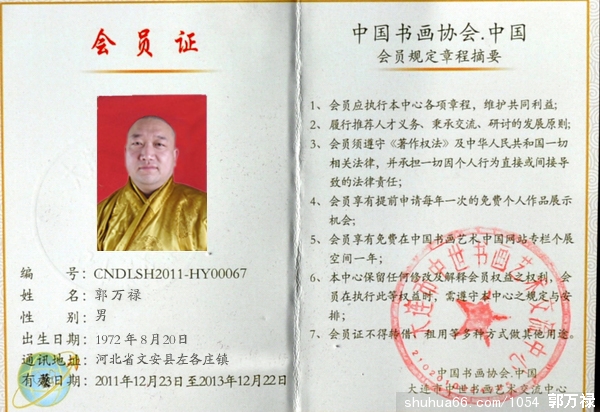 会员证
编 号：CNDLSH2011-HY00067
姓 名：郭万禄
性 别：男
出生日期：1972年8月20日
通讯地址：河北省文安县左各庄镇
有效日期：2011年12月23日至2013年12月22日
中国书画协会.中国
会员规定章程摘要
1、会员应执行本中心各项章程，维护共同利益；
2、履行推荐人才义务、秉承交流、研讨的发展原则；
3、会员须遵守《著作权法》及中华人民共和国一切
相关法律，并承担一切因个人行为直接或间接导
致的法律责任；
4、会员享有提前申请每年一次的免费个人作品展示
机会；
5、会员享有免费在中国书画艺术.中国网站专栏个展
空间一年；
6、本中心保留任何修改及解释会员权益之权利，会
员在执行此等权益时，需遵守本中心之规定与安
排；
7、会员证不得转借、租用等多种方式做其他用途。
大连市中世书画艺术交流中心
中国书画协会.中国
大连市中世书画艺术交流中心
shuhua66.com/1054 郭万禄